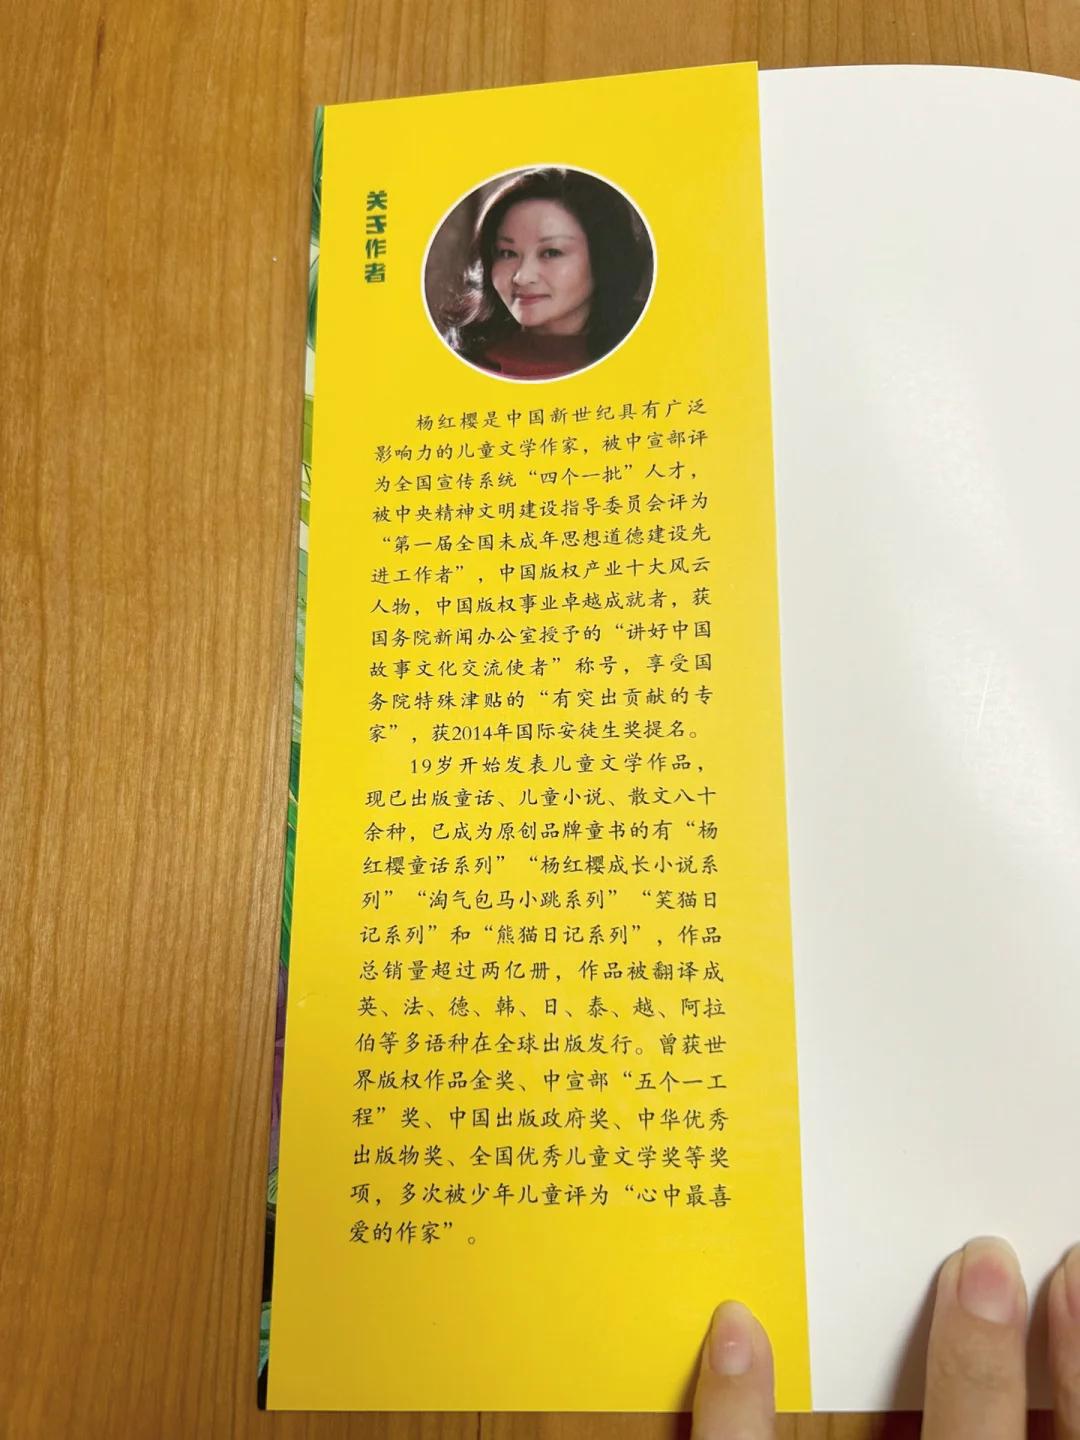 关于作者
杨红樱是中国新世纪具有广泛
影响力的儿童文学作家，被中宣部评
为全国宣传系统“四个一批”人才，
被中央精神文明建设指导委员会评为
“第一届全国未成年思想道德建设先
进工作者”，中国版权产业十大风云
人物，中国版权事业卓越成就者，获
国务院新闻办公室授予的“讲好中国
故事文化交流使者”称号，享受国
务院特殊津贴的“有突出贡献的专
家”，获2014年国际安徒生奖提名。
19岁开始发表儿童文学作品，
现已出版童话、儿童小说、散文八十
余种，已成为原创品牌童书的有“杨
红樱童话系列”“杨红樱成长小说系
列”“淘气包马小跳系列”“笑猫日
记系列”和“熊猫日记系列”，作品
总销量超过两亿册，作品被翻译成
英、法、德、韩、日、泰、越、阿拉
伯等多语种在全球出版发行。曾获世
界版权作品金奖、中宣部“五个一工
程”奖、中国出版政府奖、中华优秀
出版物奖、全国优秀儿童文学奖等奖
项，多次被少年儿童评为“心中最喜
爱的作家”。